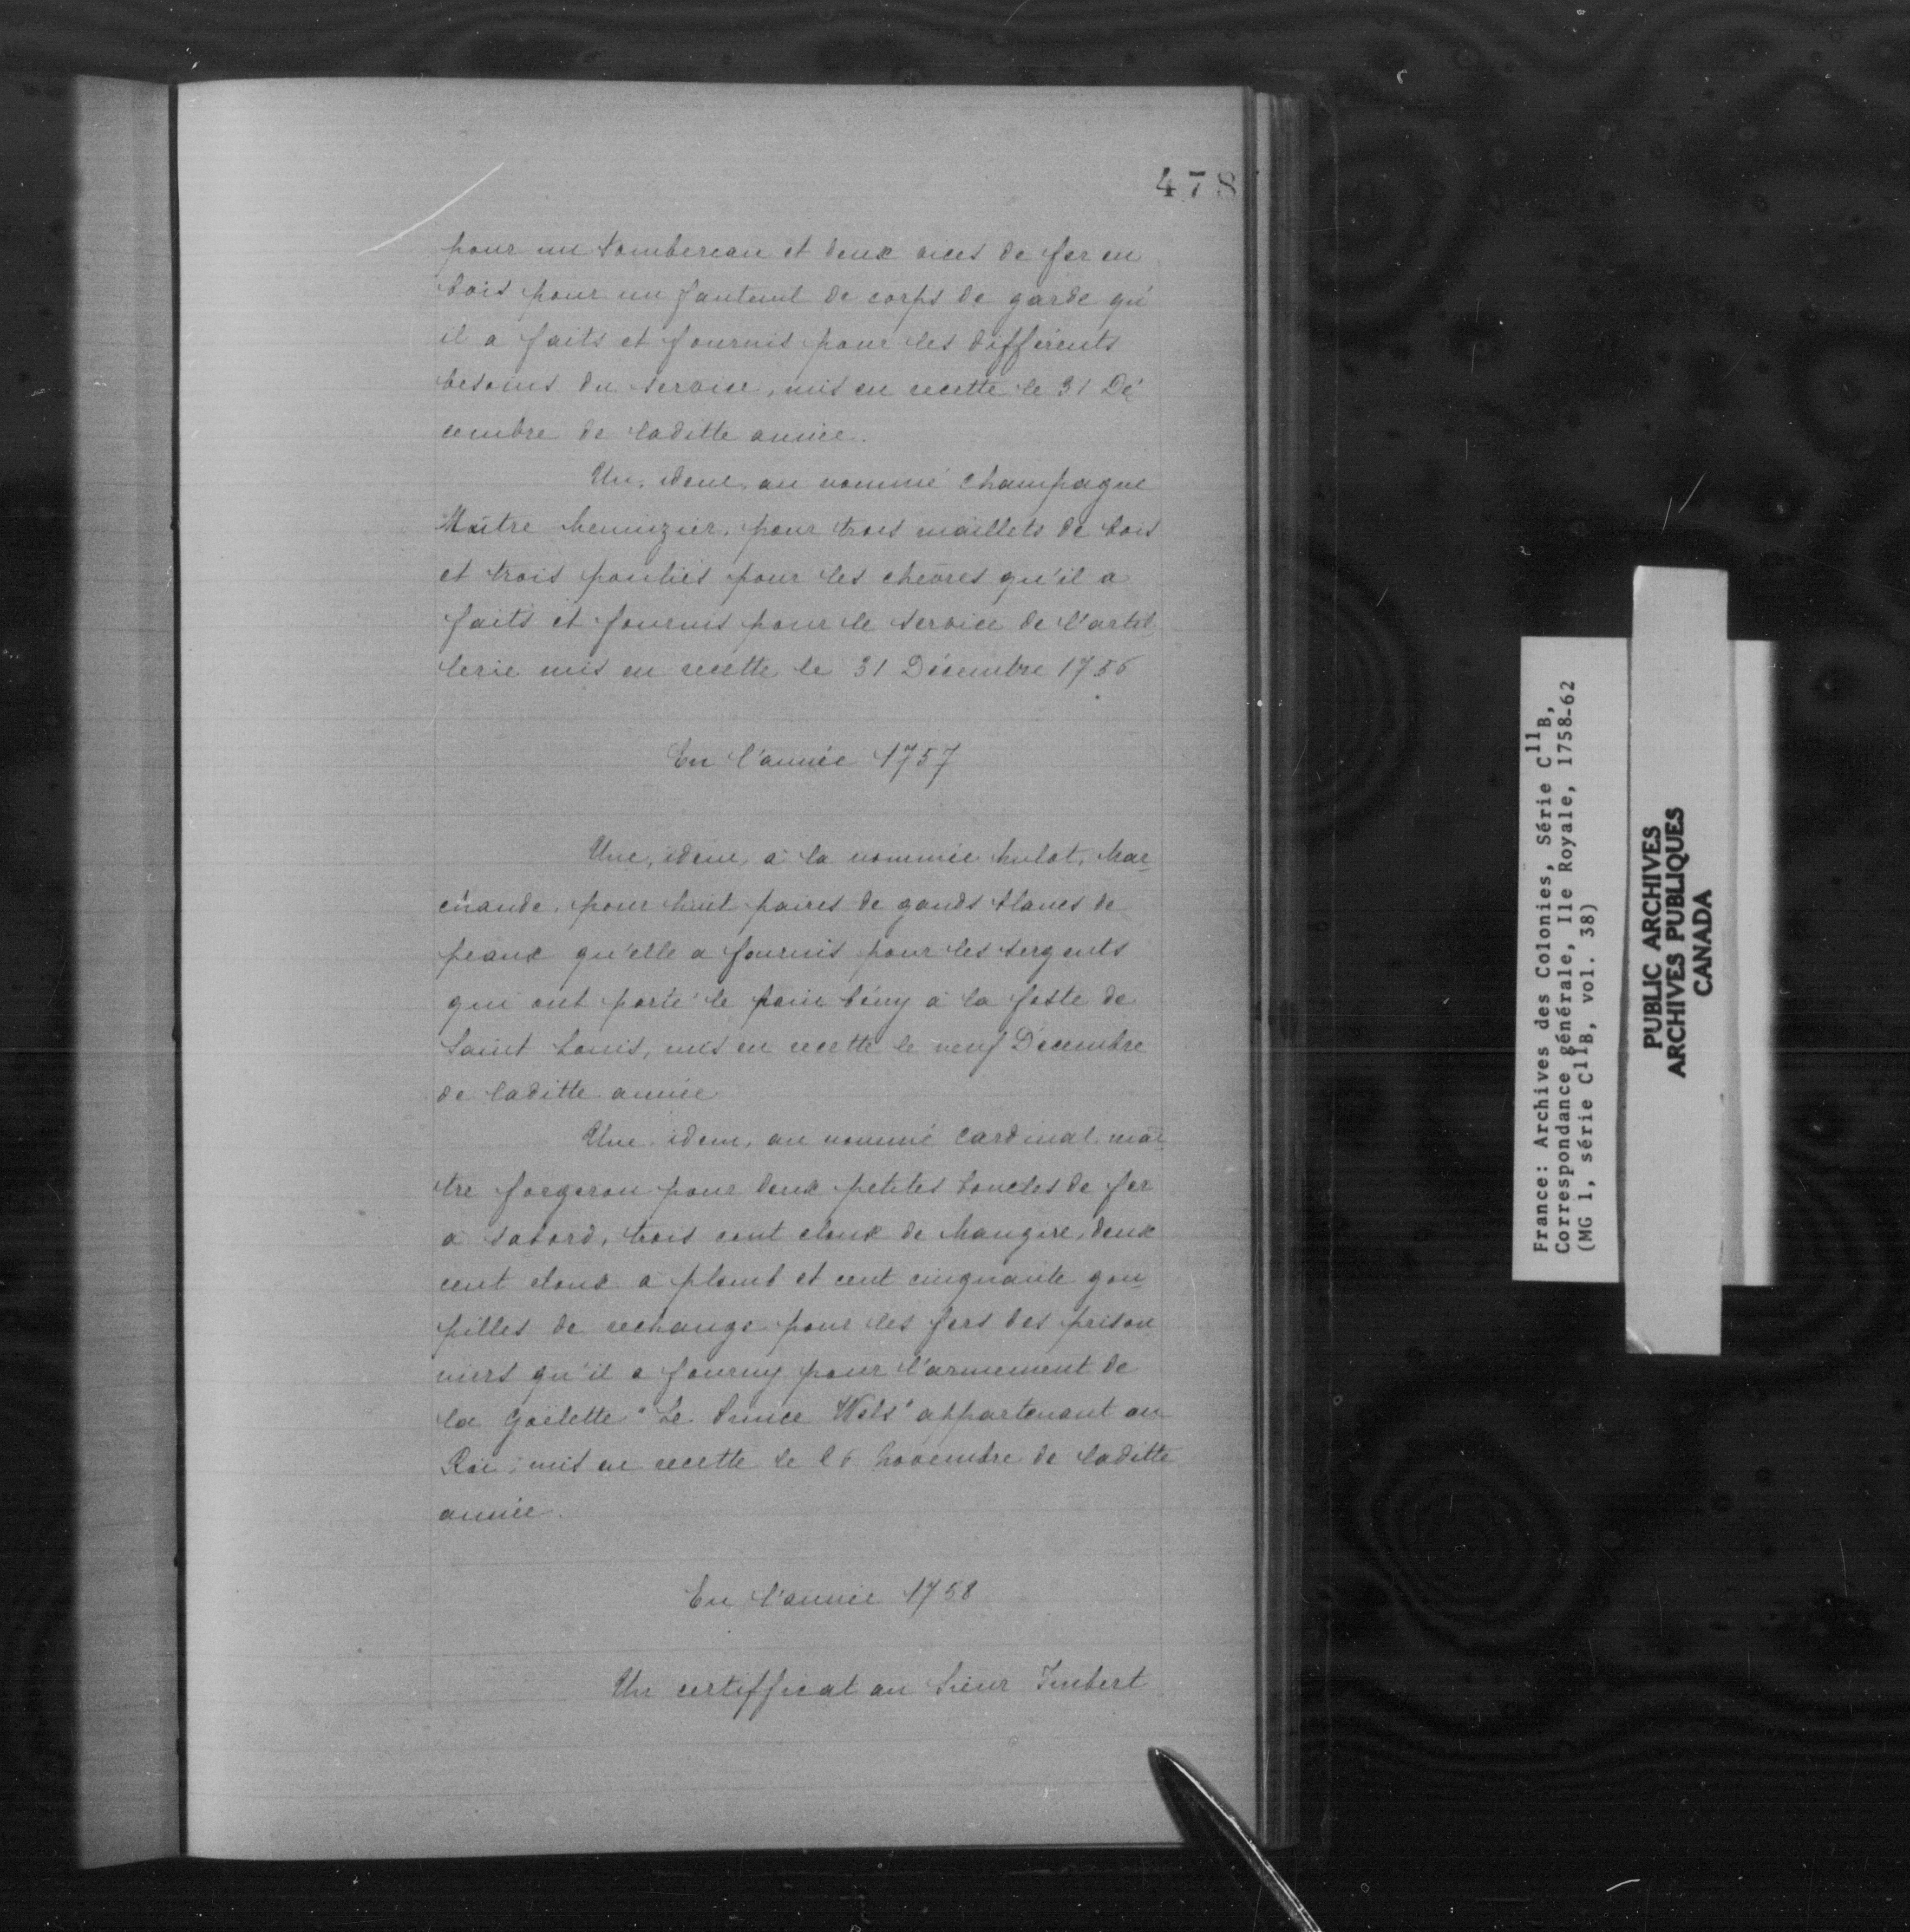 478
pour un tombereau et deux vices de fer en
bois pour un fauteuil de corps de garde qu'
il a faits et fournis pour les différents
besoins du service, mis en recette le 31 Dé
cembre de laditte année.
Un, idem, au nommé Champagne
Maitre Menuizier, pour trois maillets de bois
et trois poulies pour les chevres qu'il a
faits et fournis pour le service de l'artil
lerie mis en recette le 31 Décembre 1756
En l'année 1757
Une, idem, à la nommée Mulot, Mar
chande, pour huit paires de gands blancs de
peaux qu'elle a fournis pour les sergents
qui ont porté le pain bény à la feste de
Saint Louis, mis en recette le neuf Décembre
de laditte année
Une idem, au nommé Cardinal mai
tre forgeron pour deux petites boucles de fer
a sabord, trois cent cloux de Maugere, deux
cent cloux a plomb et cent cinquante gou
pilles de rechange pour les fers des prison
niers qu'il a fourny pour l'armement de
la Goëlette "Le Prince Wals" appartenant au
Roi, mis en recette le 26 Novembre de laditte
année.
En l'année 1758
Un certifficat au Sieur Imbert
France: Archives des Colonies, Série C11B,
Correspondance générale, Ile Royale, 1758-62
(MG 1, série C11B, vol. 38)
PUBLIC ARCHIVES
ARCHIVES PUBLIQUES
CANADA